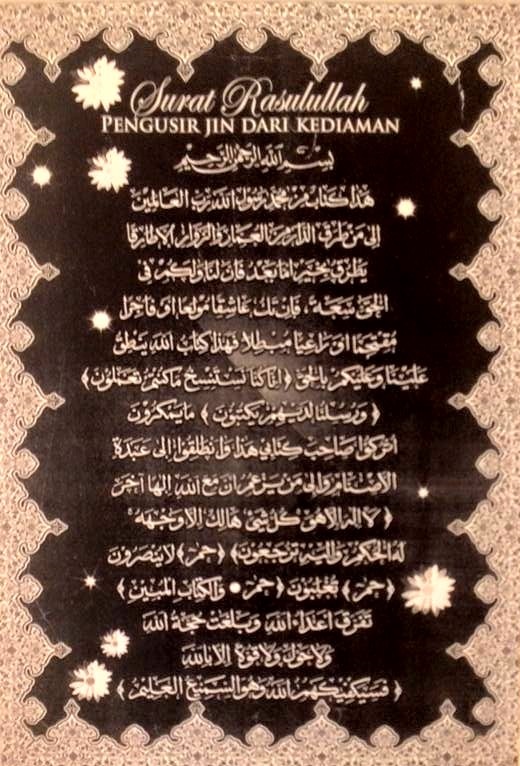 Surat Rasulullah
PENGUSIR JIN DARI KEDIAMAN
بسم الله الرحمن الرحيم
هذا كتاب من محمد رسول الله رب العالمين
إلى من طرق الدار من العمار والزوار إلا طارقا
يطرق بخير أما بعد فإن لنا ولكم في
الحق سعة، فإن تك عاشقا مولعا أو فاجرا
مقتحما أو راغبا مبطلا فهذا كتاب الله ينطق
علينا وعليكم بالحق ﴿ إنا كنا نستنسخ ما كنتم تعملون ﴾
﴿ ورسلنا لديهم يكتبون ﴾ ما يمكرون
أتركوا صاحب كتابي هذا وانطلقوا إلى عبدة
الأصنام وإلى من يزعم أن مع الله إلها آخر
﴿ لا إله إلا هو كل شيء هالك إلا وجهه
له الحكم وإليه ترجعون ﴾ ﴿ حم ﴾ لا ينصرون
﴿ حم ﴾ تغلبون ﴿ حم • والكتاب المبين ﴾
تفرق أعداء الله وبلغت حجة الله
ولا حول ولا قوة إلا بالله
﴿ فسيكفيكهم الله وهو السميع العليم ﴾